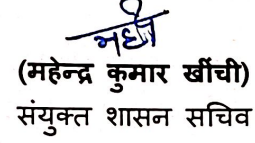 (महेन्द्र कुमार खींची)
संयुक्त शासन सचिव